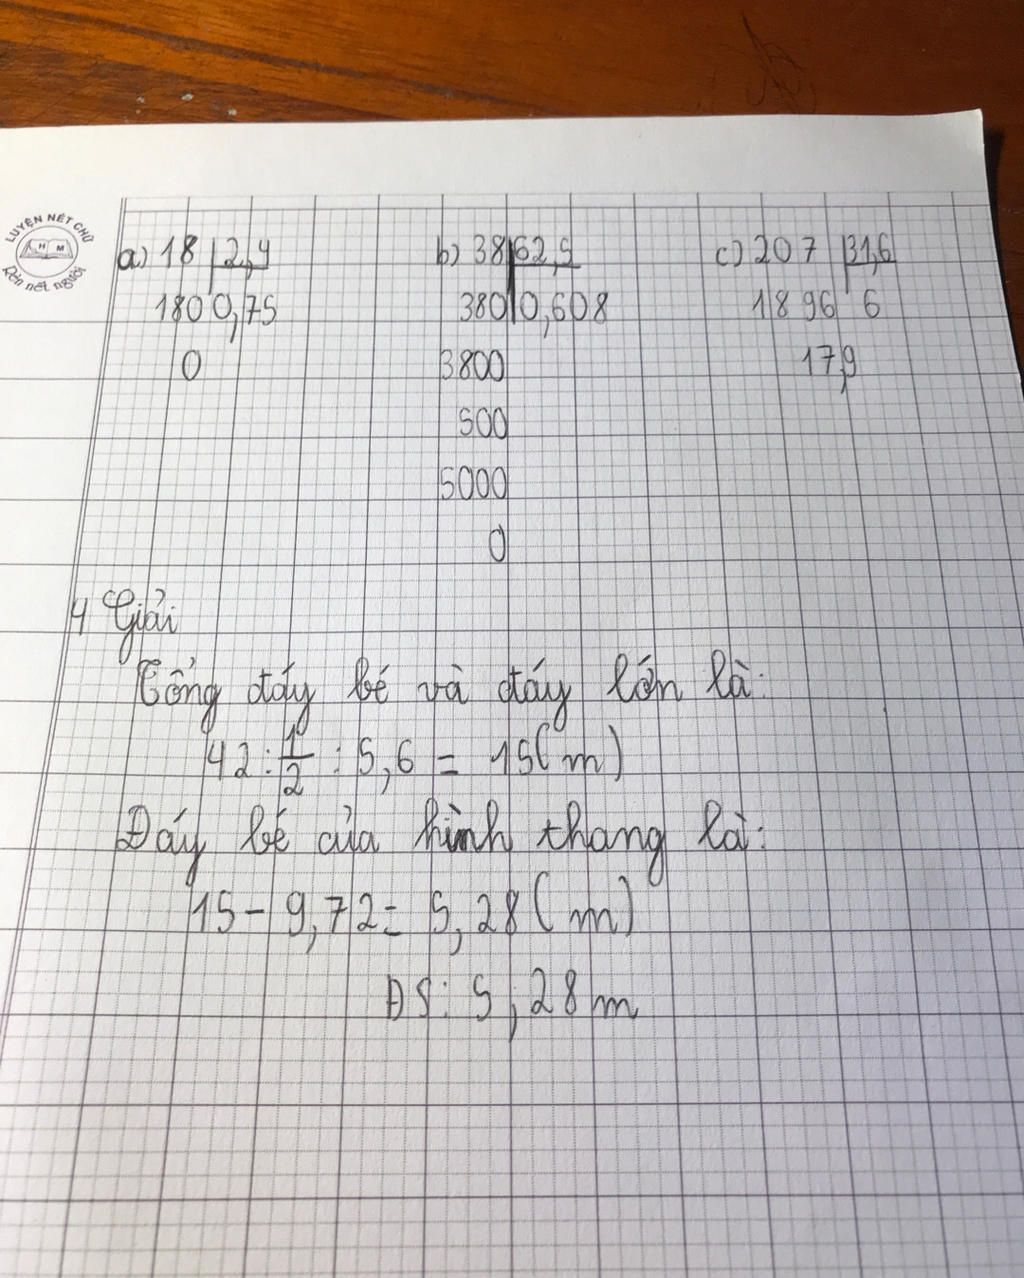 LUYỆN NÉT CHỮ
H M
Rèn nết người
a) 18 2,4
180 0,75
0
b) 38 62,5
380 0,608
3800
500
5000
0
c) 207 31,6
1896 6
17,9
4 Giải
Tổng đáy bé và đáy lớn là:
42 : 1/2 : 5,6 = 15(m)
Đáy bé của hình thang là:
15 - 9,72 = 5,28(m)
ĐS: 5,28m